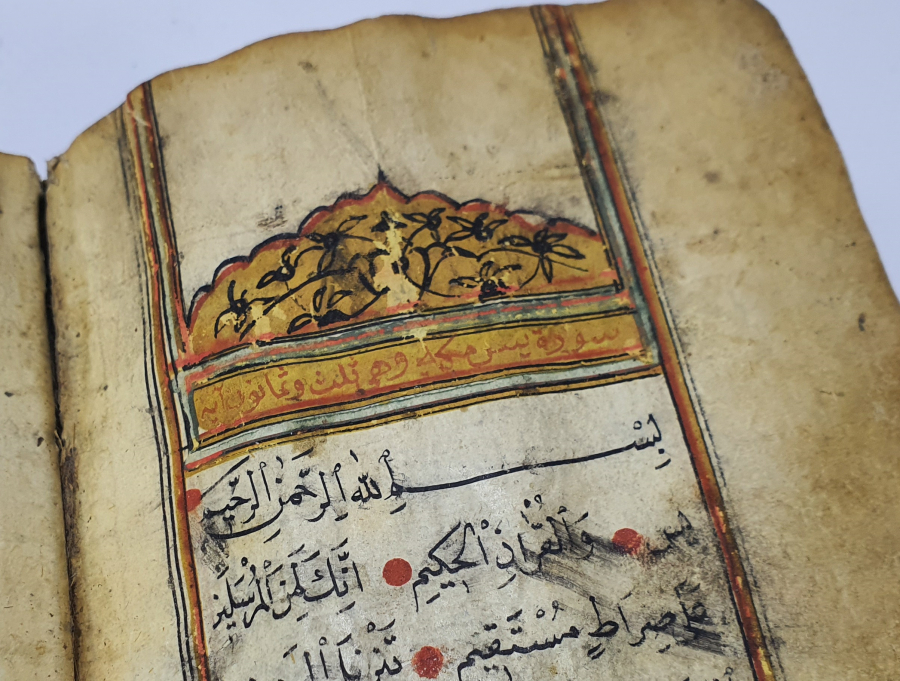 سورة يس مكية وهي ثلث وثمانون آية
بِسْمِ اللهِ الرَّحْمٰنِ الرَّحِيمِ
يس وَالْقُرْاٰنِ الْحَكِيمِ اِنَّكَ لَمِنَ الْمُرْسَلِينَ
عَلٰى صِرَاطٍ مُسْتَقِيمٍ تَنْزِيلَ